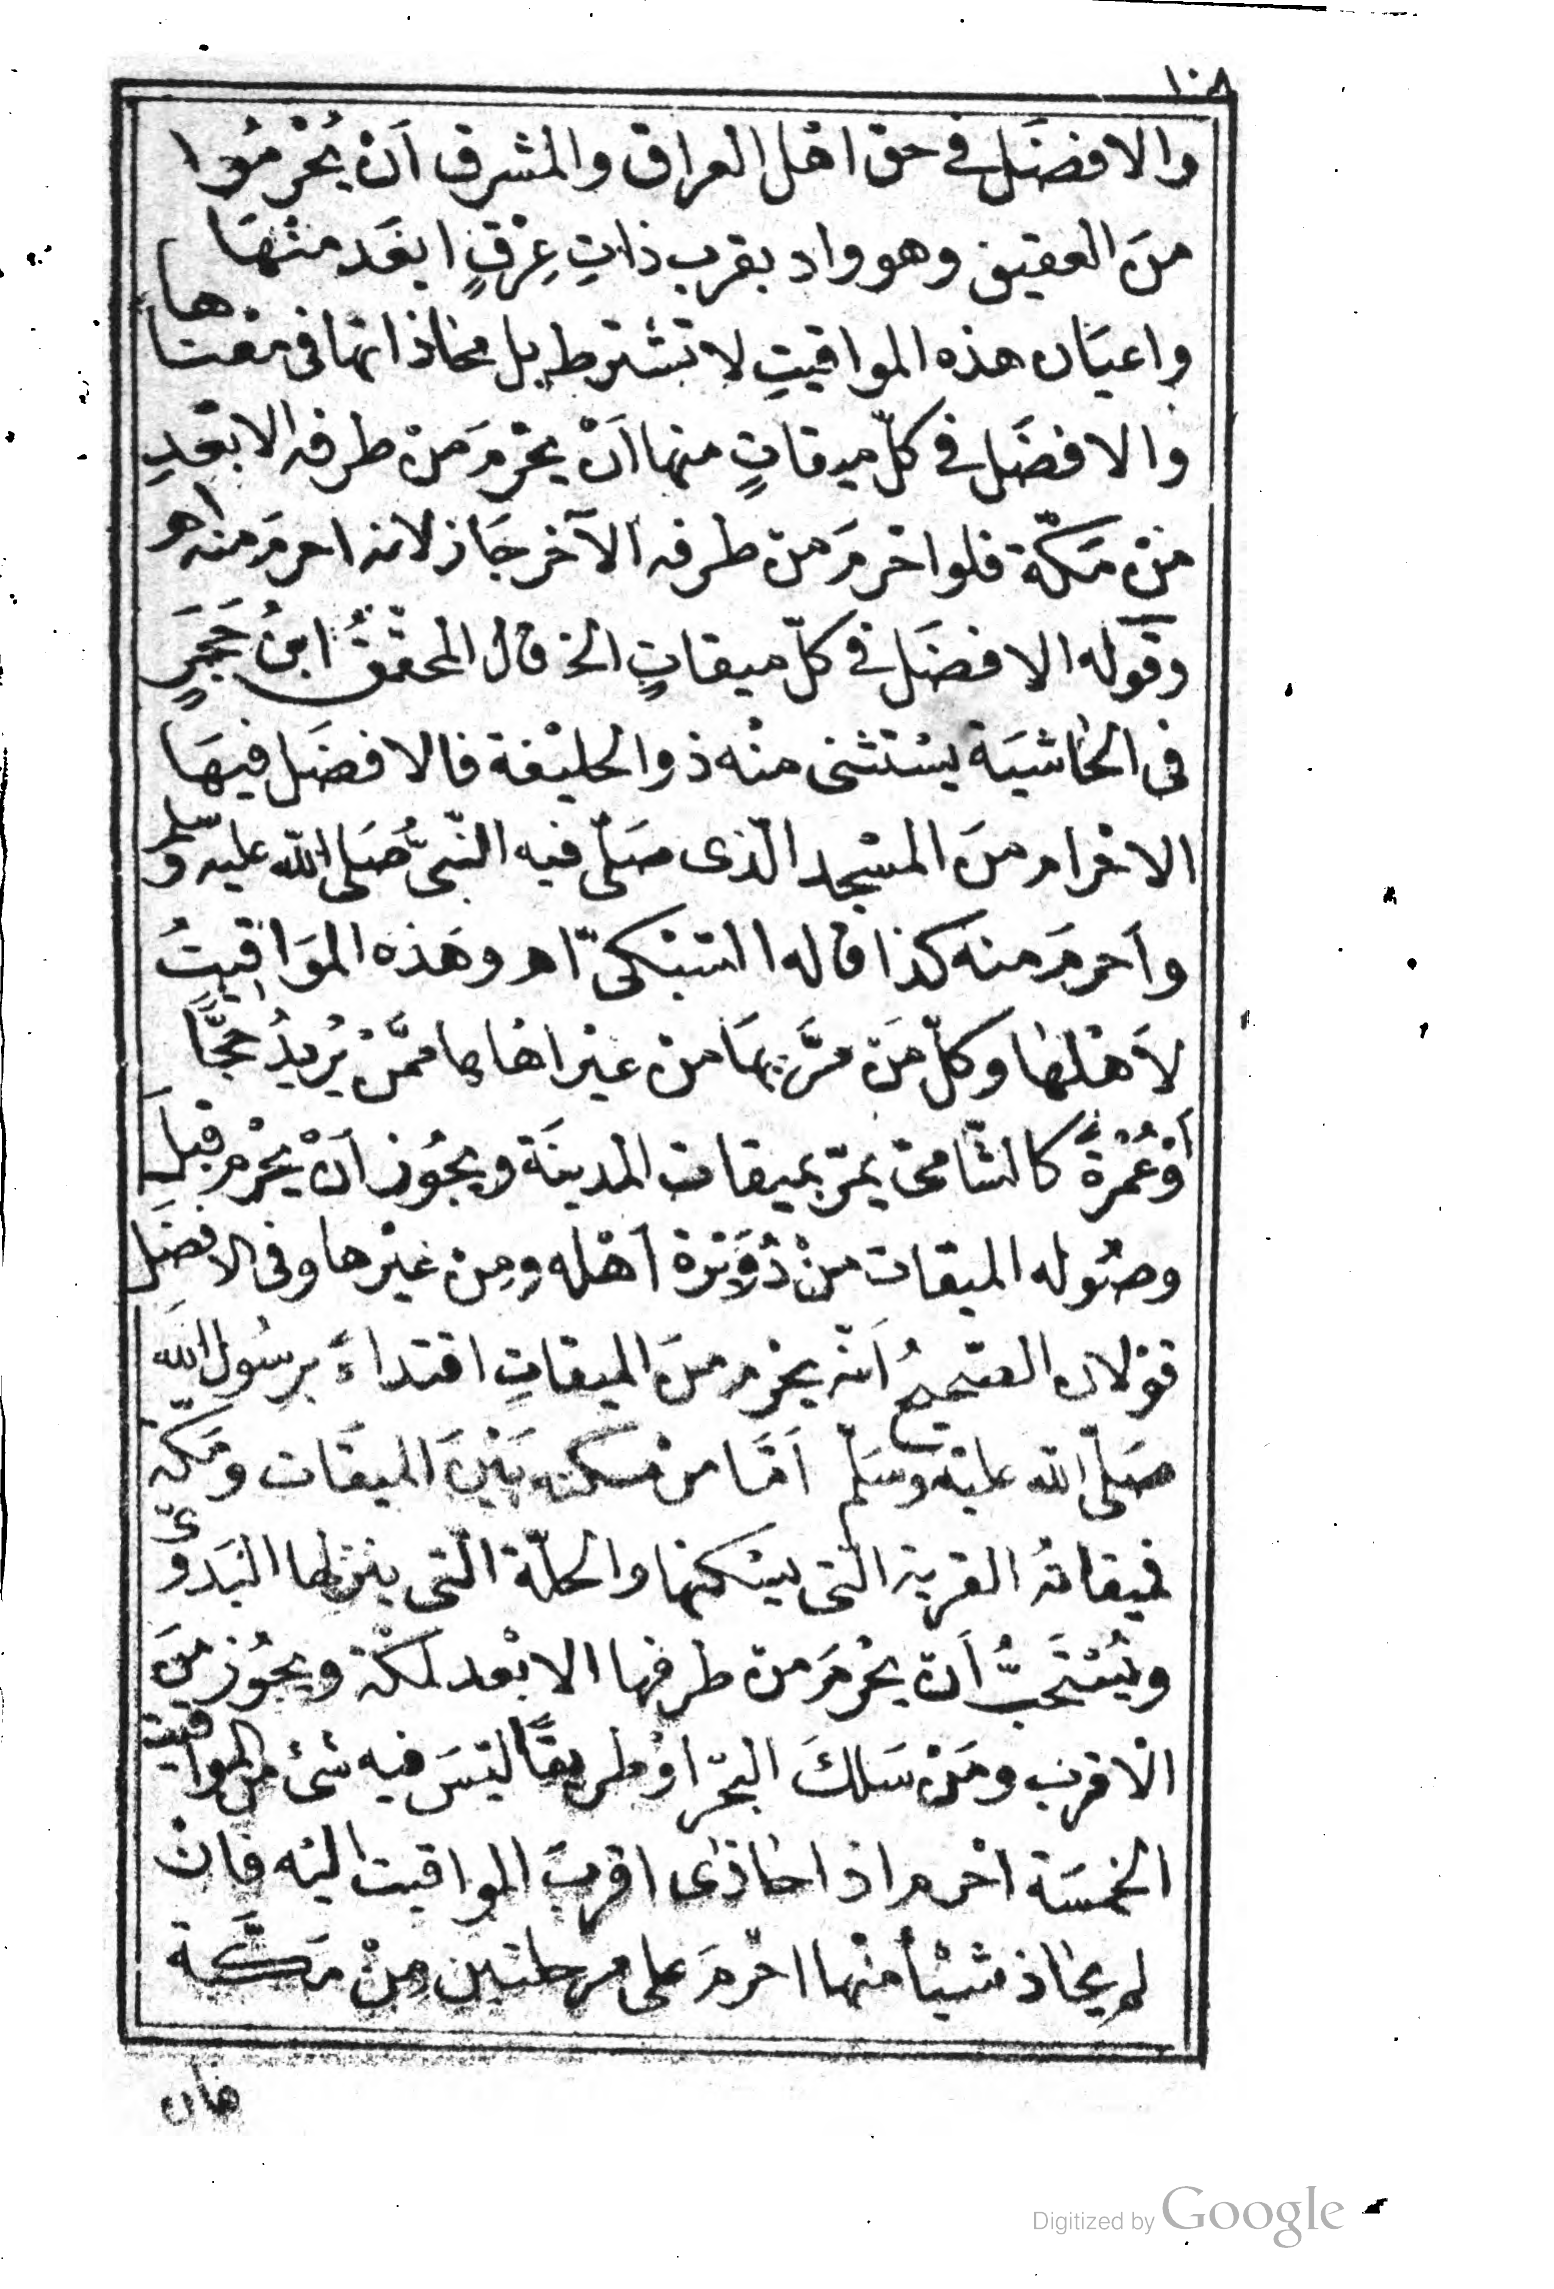 ١٠٨
والافضَل فى حق اهْل العراق والمشرق اَنْ يُحْرِمُوا
منَ العقيق وهو واد بقرب ذاتِ عِرْقٍ ابعَد منْهَا
واعيَان هذه المواقيتِ لا تشترط بل محاذاتها فى معناها
والافضَل فى كلّ ميقاتٍ منها اَنْ يحْرمَ منْ طرفه الابعَدِ
منْ مَكّة فلو احْرمَ منْ طرفه الآخر جَاز لانه احرمَ منه اهـ
وقوله الافضَل فى كلّ ميقاتٍ الخ قال المحقّقُ ابنُ حَجَرٍ
فى الحَاشيَة يسْتثنى منْه ذو الحليْفة فالافضَل فيهَا
الاحْرام منَ المسْجد الّذى صَلّى فيه النّبىُّ صَلى الله عليه وسلم
واَحرمَ منه كذا قاله السّبْكىّ اهـ وهَذه المَوَاقيتُ
لاَهْلهَا وكلّ مَنْ مَرَّ بهَا منْ غيْر اهْلهَا ممَّنْ يُريدُ حَجًّا
اَوْ عُمْرةً كالشّامىّ يمرّ بميقات المدينَة ويجُوز اَنْ يحْرم قبلَ
وصُوله الميقات منْ دُوَيْرة اَهْله ومِنْ غيْرها وفى الافضَل
قوْلان الصّحيحُ اَنّه يحْرم منَ الميقاتِ اقتداءً برسُول الله
صَلّى الله عليْه وَسَلّم اَمَّا منْ مسْكنه بَيْنَ الميقَات ومَكّة
فميقاتهُ القرية الّتى يسْكنها والحلّة الّتى ينزلها البَدوىّ
ويُسْتَحَبُّ اَنْ يحْرمَ منْ طرفها الابْعد لمكّة ويجُوز منَ
الاقرب ومَنْ سَلكَ البحْر اوْ طريقًا ليْسَ فيه شئ من المواقيت
الخمسَة احْرم اذا حَاذى اقربَ المواقيت اليْه فانْ
لم يحَاذ شيْئًا منْها احْرمَ على مرحلتين مِنْ مَكَّة
فان
Digitized by Google